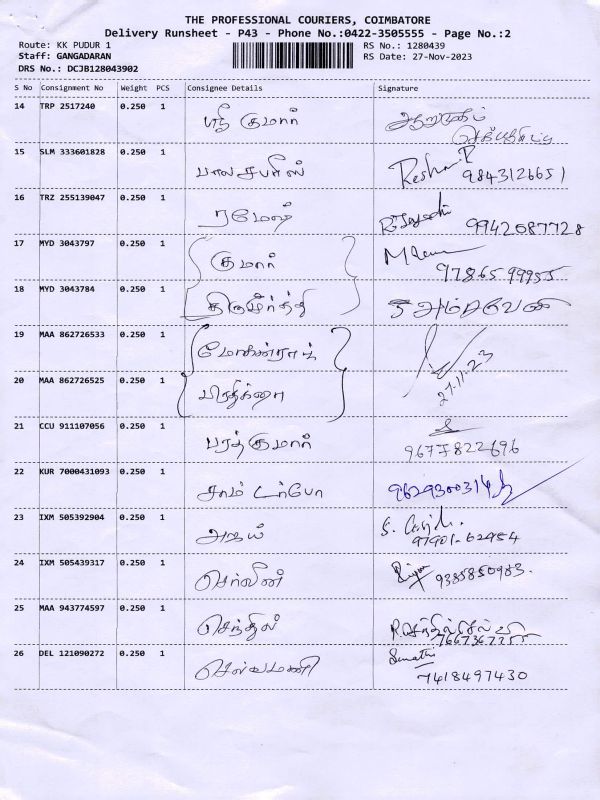 THE PROFESSIONAL COURIERS, COIMBATORE
Delivery Runsheet - P43 - Phone No.:0422-3505555 - Page No.:2
Route: KK PUDUR 1
RS No.: 1280439
Staff: GANGADARAN
RS Date: 27-Nov-2023
DRS No.: DCJB128043902
S No Consignment No Weight PCS Consignee Details Signature
14 TRP 2517240 0.250 1 ஸ்ரீ குமார் ஆறுமுகம்
15 SLM 333601828 0.250 1 பாலசபரீஸ் Resha.R
9843126651
16 TRZ 255139047 0.250 1 ரமேஷ் 9942087728
17 MYD 3043797 0.250 1 குமார்
9786599955
18 MYD 3043784 0.250 1 திருமூர்த்தி
19 MAA 862726533 0.250 1 மோகன்ராஜ்
27-11-23
20 MAA 862726525 0.250 1 பிரதிக்ஷா
21 CCU 911107056 0.250 1 பரத்குமார்
9677822696
22 KUR 7000431093 0.250 1 சாம் டர்போ 9629300314
23 IXM 505392904 0.250 1 அஜய்
97901-62954
24 IXM 505439317 0.250 1 செர்லின் 9385850983.
25 MAA 943774597 0.250 1 செந்தில் R.செந்தில்செல்வி
7667367255
26 DEL 121090272 0.250 1 செல்வமணி Sumathi
7418497430